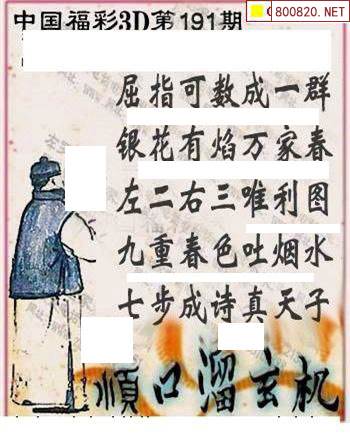 中国福彩3D第191期
800820.NET
屈指可数成一群
银花有焰万家春
左二右三唯利图
九重春色吐烟水
七步成诗真天子
順口溜玄机